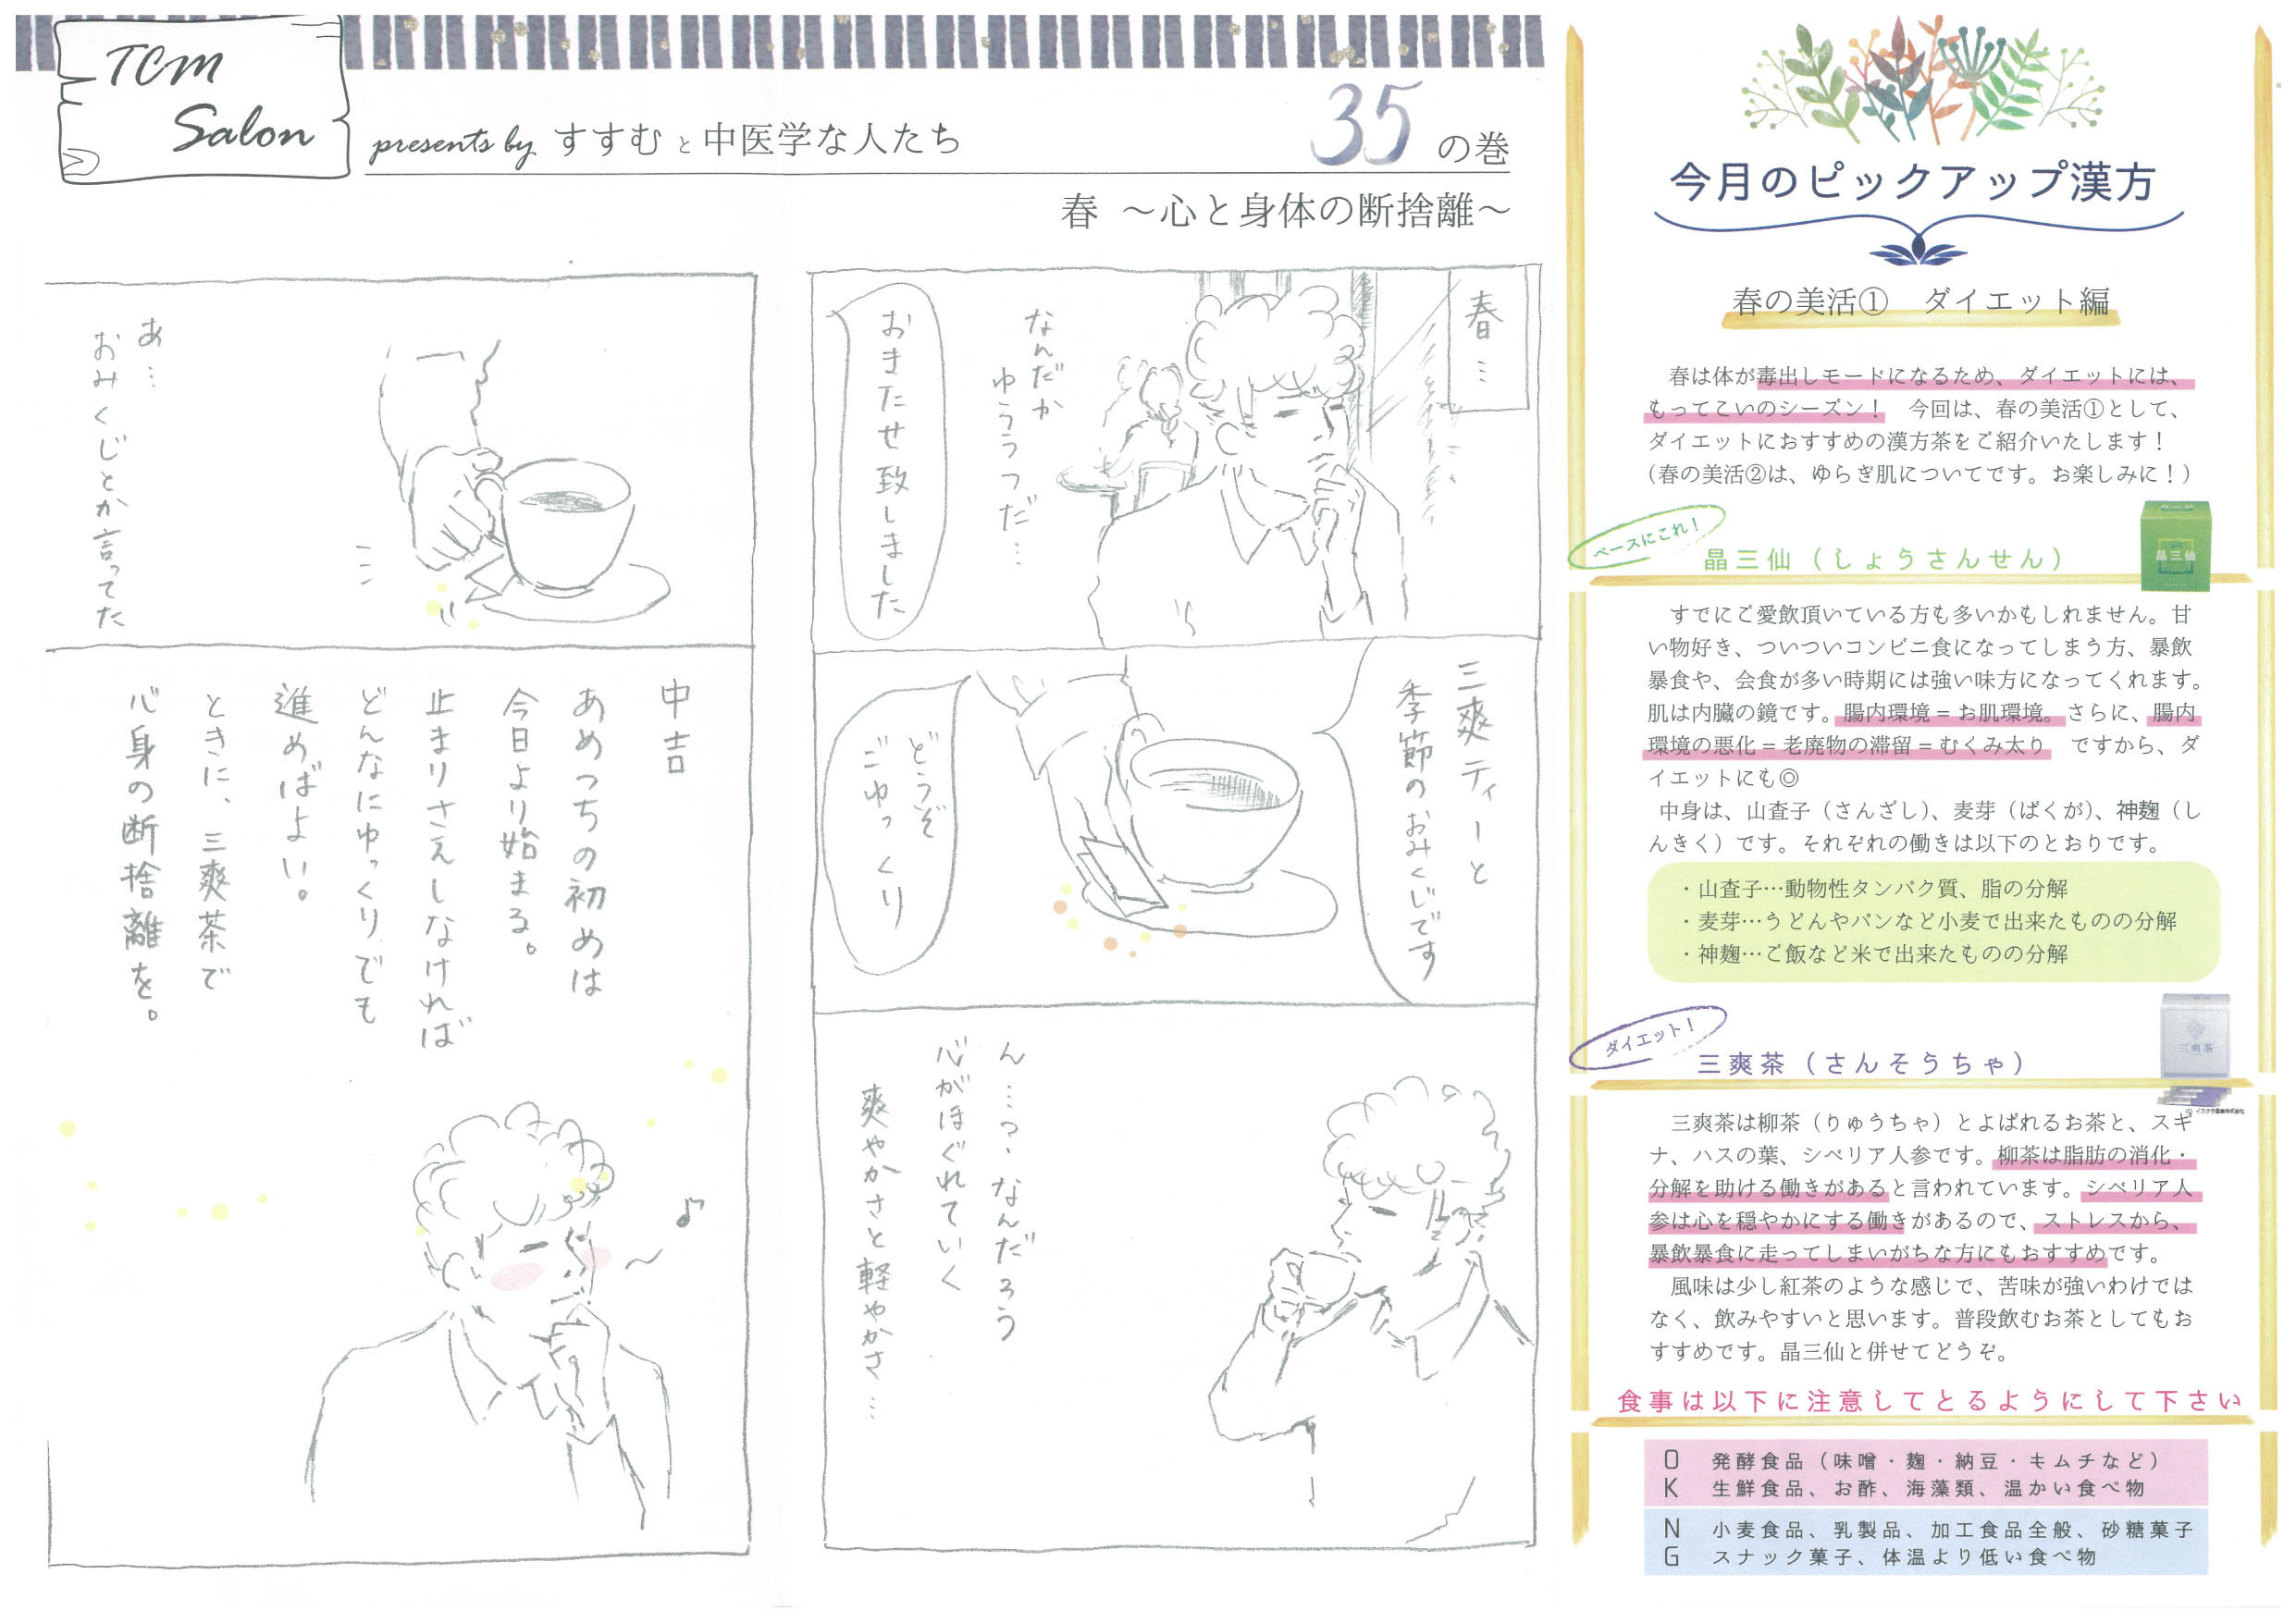 TCM
Salon
presents by すすむと中医学な人たち
35の巻
春 ～心と身体の断捨離～
春…
なんだか
ゆううつだ…
おまたせ致しました
三爽ティーと
季節のおみくじです
どうぞ
ごゆっくり
ん…？なんだろう
心がほぐれていく
爽やかさと軽やかさ…
あ…
おみくじとか言ってた
中吉
あめつちの初めは
今日より始まる。
止まりさえしなければ
どんなにゆっくりでも
進めばよい。
ときに、三爽茶で
心身の断捨離を。
今月のピックアップ漢方
春の美活① ダイエット編
春は体が毒出しモードになるため、ダイエットには、
もってこいのシーズン！ 今回は、春の美活①として、
ダイエットにおすすめの漢方茶をご紹介いたします！
（春の美活②は、ゆらぎ肌についてです。お楽しみに！）
ベースにこれ！
晶三仙（しょうさんせん）
晶三仙
すでにご愛飲頂いている方も多いかもしれません。甘
い物好き、ついついコンビニ食になってしまう方、暴飲
暴食や、会食が多い時期には強い味方になってくれます。
肌は内臓の鏡です。腸内環境＝お肌環境。さらに、腸内
環境の悪化＝老廃物の滞留＝むくみ太り ですから、ダ
イエットにも◎
中身は、山査子（さんざし）、麦芽（ばくが）、神麹（し
んきく）です。それぞれの働きは以下のとおりです。
・山査子…動物性タンパク質、脂の分解
・麦芽…うどんやパンなど小麦で出来たものの分解
・神麹…ご飯など米で出来たものの分解
ダイエット！
三爽茶（さんそうちゃ）
三爽茶
(C) イスクラ産業株式会社
三爽茶は柳茶（りゅうちゃ）とよばれるお茶と、スギ
ナ、ハスの葉、シベリア人参です。柳茶は脂肪の消化・
分解を助ける働きがあると言われています。シベリア人
参は心を穏やかにする働きがあるので、ストレスから、
暴飲暴食に走ってしまいがちな方にもおすすめです。
風味は少し紅茶のような感じで、苦味が強いわけでは
なく、飲みやすいと思います。普段飲むお茶としてもお
すすめです。晶三仙と併せてどうぞ。
食事は以下に注意してとるようにして下さい
OK
発酵食品（味噌・麹・納豆・キムチなど）
生鮮食品、お酢、海藻類、温かい食べ物
NG
小麦食品、乳製品、加工食品全般、砂糖菓子
スナック菓子、体温より低い食べ物